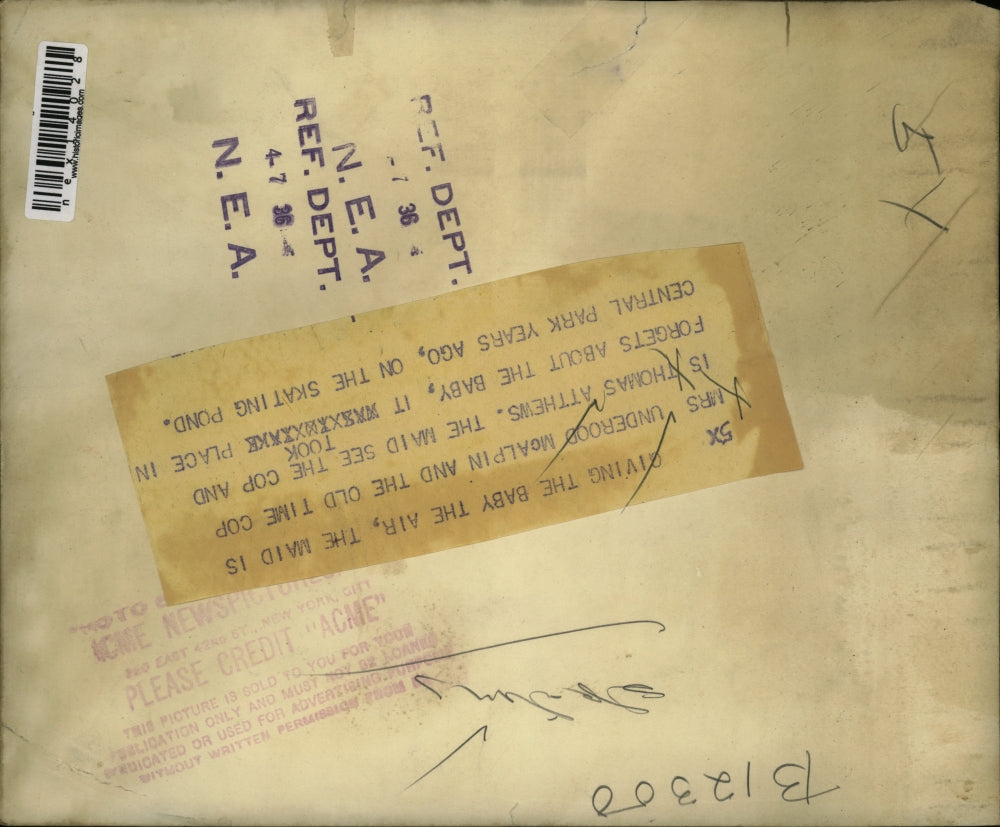 GIVING THE BABY THE AIR, THE MAID IS
5X MRS UNDEROOD MCALPIN AND THE OLD TIME COP
IS THOMAS ATTHEWS. THE MAID SEE THE COP AND
TOOK
FORGETS ABOUT THE BABY, IT XXXXXXXXXX PLACE IN
CENTRAL PARK YEARS AGO, ON THE SKATING POND.
REF. DEPT.
4-7 36
N. E. A.
REF. DEPT.
7 36
N. E. A.
ACME NEWSPICTURES
EAST 42ND ST., NEW YORK, CITY
PLEASE CREDIT "ACME"
THIS PICTURE IS SOLD TO YOU FOR YOUR
PUBLICATION ONLY AND MUST NOT BE LOANED
SYNDICATED OR USED FOR ADVERTISING PURPOSE
WITHOUT WRITTEN PERMISSION FROM
B12300
www.historicimages.com